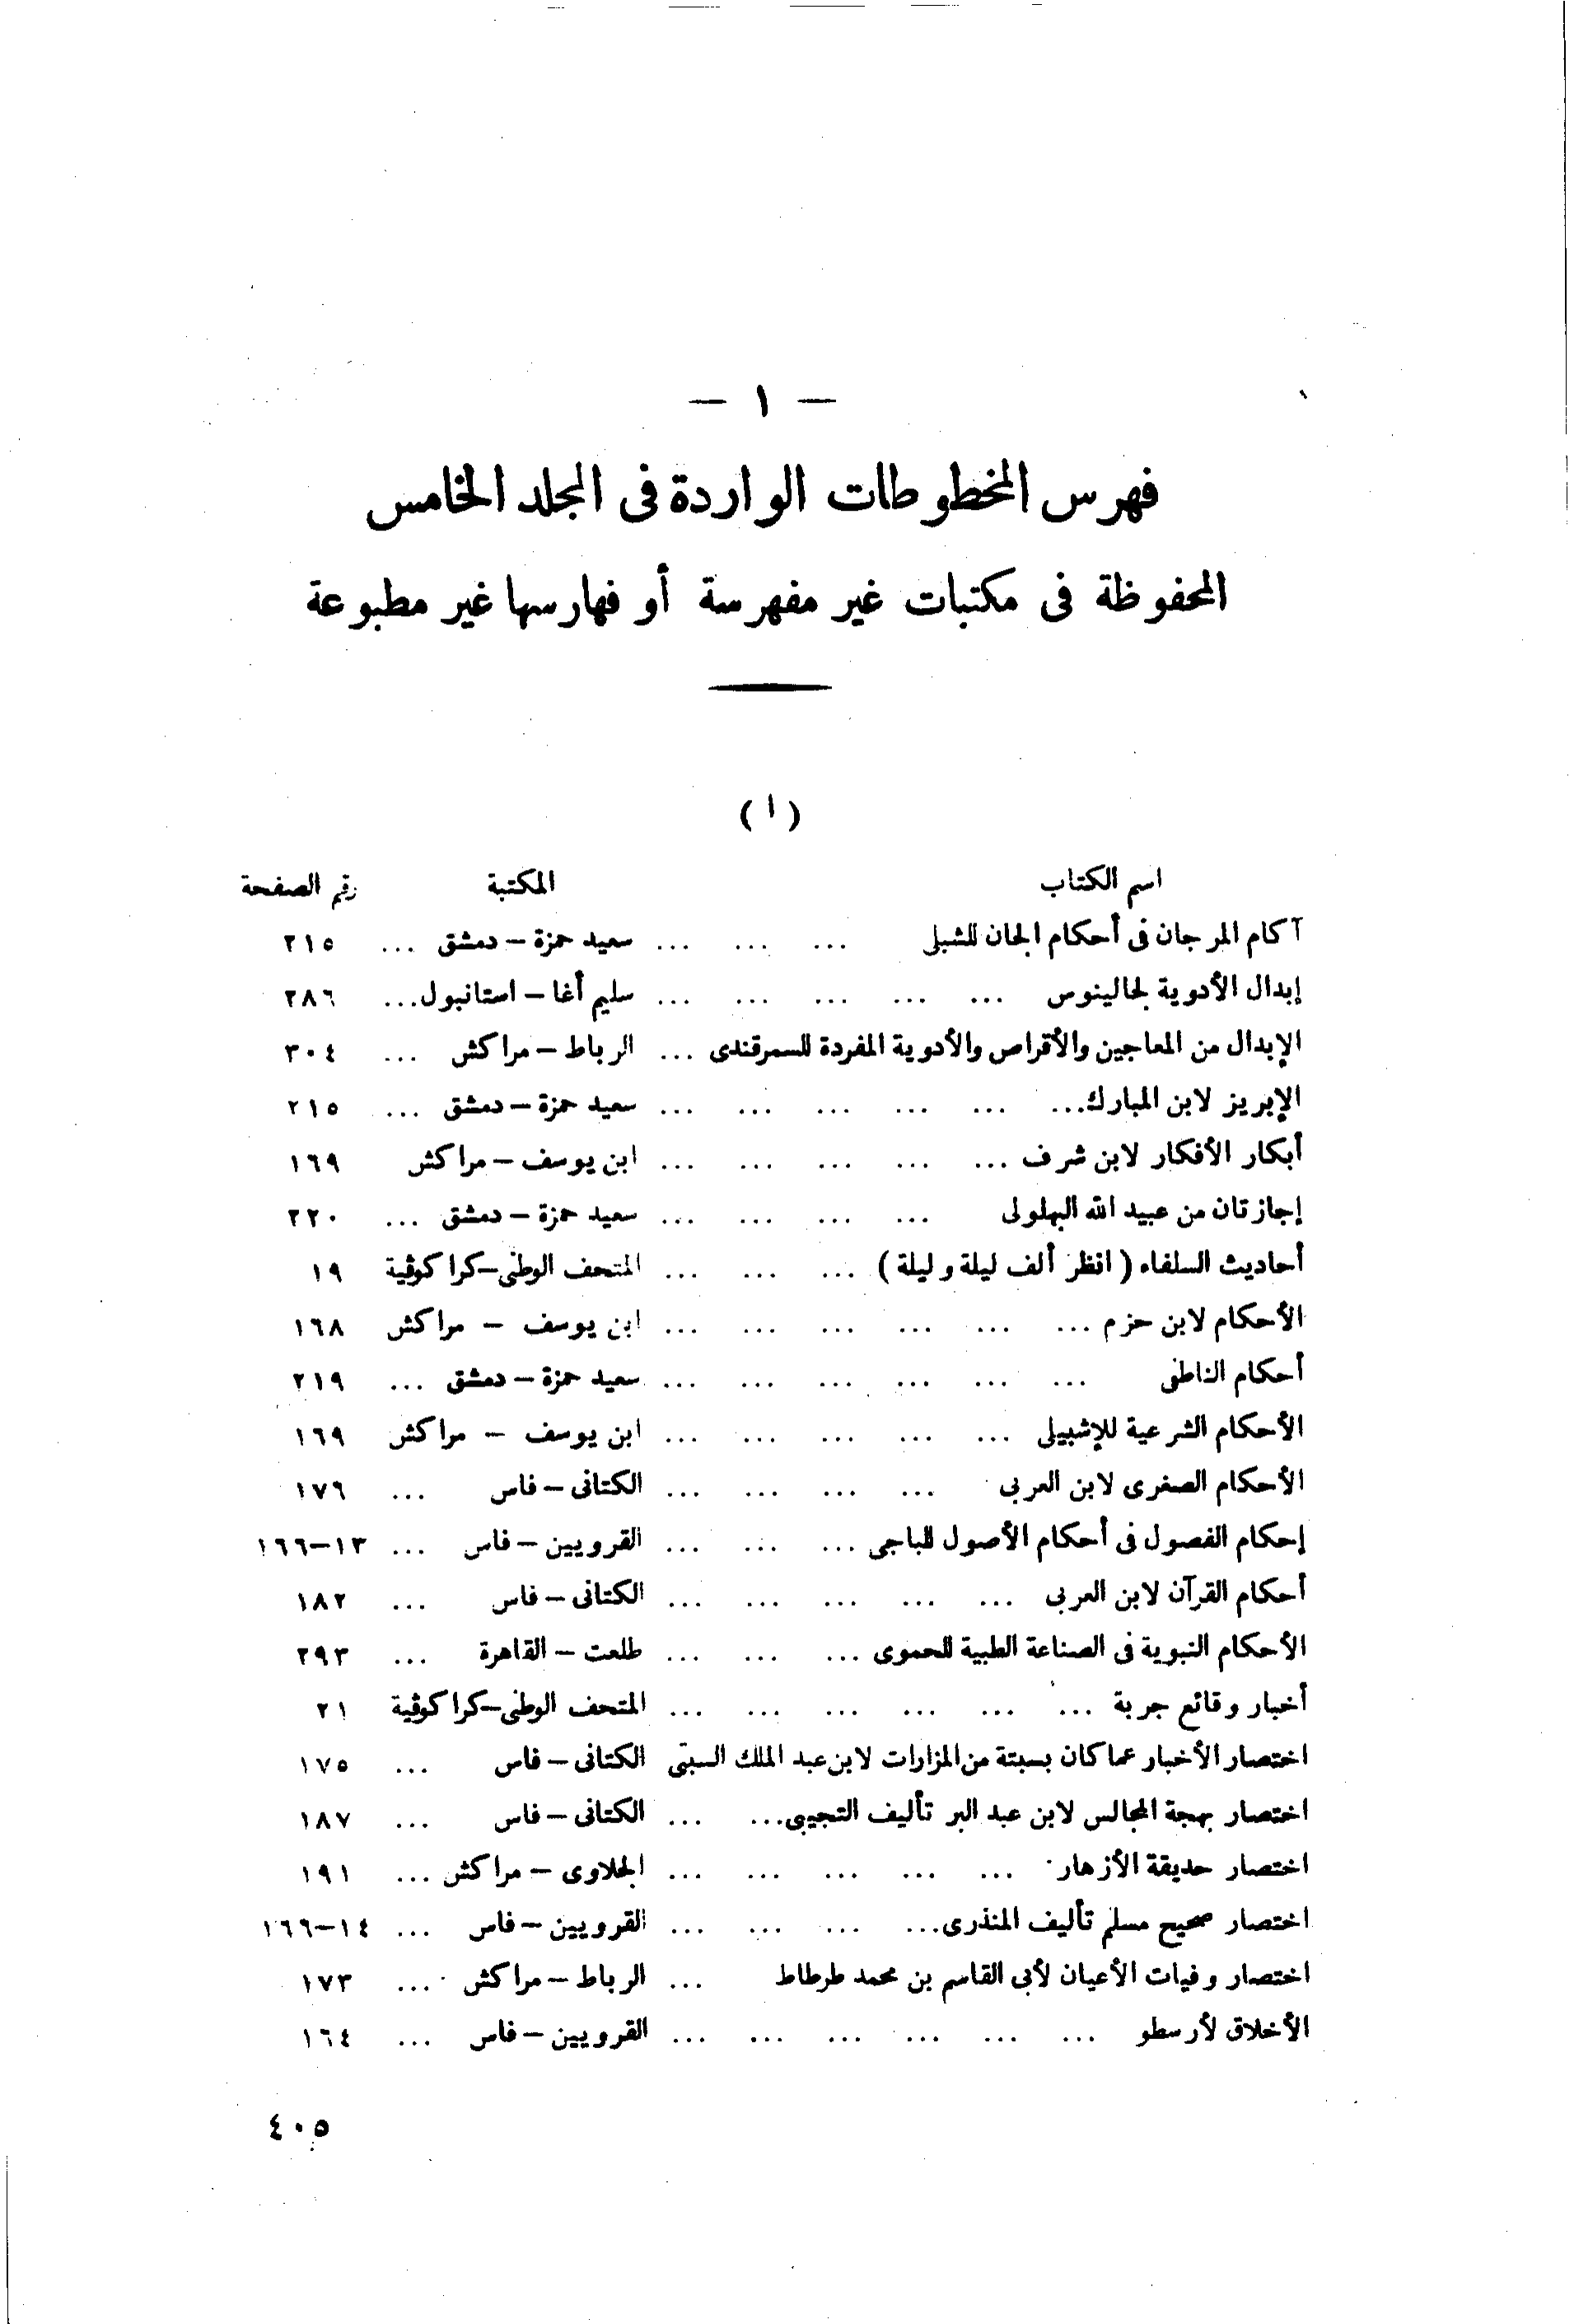 — ١ —
فهرس المخطوطات الواردة فى المجلد الخامس
المحفوظة فى مكتبات غير مفهرسة أو فهارسها غير مطبوعة
( ا )
اسم الكتاب المكتبة رقم الصفحة
آكام المرجان فى أحكام الجان للشبلى ... ... ... سعيد حمزة – دمشق ... ٢١٥
إبدال الأدوية لجالينوس ... ... ... ... ... سليم أغا – استانبول ... ٢٨٦
الإبدال من المعاجين والأقراص والأدوية المفردة للسمرقندى ... الرباط – مراكش ... ٣٠٤
الإبريز لابن المبارك ... ... ... ... ... ... سعيد حمزة – دمشق ... ٢١٥
أبكار الأفكار لابن شرف ... ... ... ... ... ابن يوسف – مراكش ١٦٩
إجازتان من عبيد الله البهلولى ... ... ... ... سعيد حمزة – دمشق ... ٢٢٠
أحاديث السلفاء ( انظر ألف ليلة وليلة ) ... ... ... المتحف الوطنى – كراكوڤية ١٩
الأحكام لابن حزم ... ... ... ... ... ... ابن يوسف – مراكش ١٦٨
أحكام الناطفى ... ... ... ... ... ... سعيد حمزة – دمشق ... ٢١٩
الأحكام الشرعية للإشبيلى ... ... ... ... ... ابن يوسف – مراكش ١٦٩
الأحكام الصغرى لابن العربى ... ... ... ... الكتانى – فاس ... ١٧٦
إحكام الفصول فى أحكام الأصول للباجى ... ... ... القرويين – فاس ... ١٣–١٦٦
أحكام القرآن لابن العربى ... ... ... ... ... الكتانى – فاس ... ١٨٢
الأحكام النبوية فى الصناعة الطبية للحموى ... ... ... طلعت – القاهرة ... ٢٩٣
أخبار وقائع جربة ... ... ... ... ... ... المتحف الوطنى – كراكوڤية ٢١
اختصار الأخبار عما كان بسبتة من المزارات لابن عبد الملك السبتى الكتانى – فاس ... ١٧٥
اختصار بهجة المجالس لابن عبد البر تأليف التجيبى ... ... الكتانى – فاس ... ١٨٧
اختصار حديقة الأزهار ... ... ... ... ... الجلاوى – مراكش ... ١٩١
اختصار صحيح مسلم تأليف المنذرى ... ... ... ... القرويين – فاس ... ١٤–١٦٩
اختصار وفيات الأعيان لأبى القاسم بن محمد طرطاط ... الرباط – مراكش ... ١٧٣
الأخلاق لأرسطو ... ... ... ... ... ... القرويين – فاس ... ١٦٤
٤٠٥